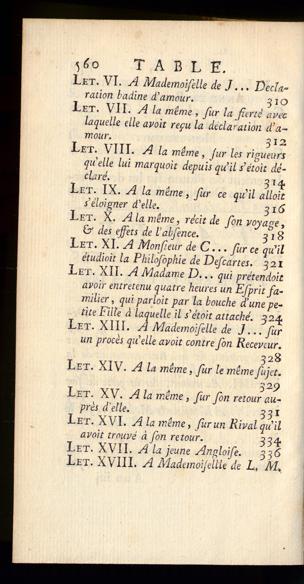 560 TABLE.
LET. VI. A Mademoiſelle de J... Decla-
ration badine d'amour. 310
LET. VII. A la même, ſur la fierté avec
laquelle elle avoit reçu la déclaration d'a-
mour. 312
LET. VIII. A la même, ſur les rigueurs
qu'elle lui marquoit depuis qu'il s'étoit dé-
claré. 314
LET. IX. A la même, ſur ce qu'il alloit
s'éloigner d'elle. 316
LET. X. A la même, récit de ſon voyage,
& des effets de l'abſence. 318
LET. XI. A Monſieur de C... ſur ce qu'il
étudioit la Philoſophie de Deſcartes. 321
LET. XII. A Madame D... qui prétendoit
avoir entretenu quatre heures un Eſprit fa-
milier, qui parloit par la bouche d'une pe-
tite Fille à laquelle il s'étoit attaché. 324
LET. XIII. A Mademoiſelle de J... ſur
un procès qu'elle avoit contre ſon Receveur.
328
LET. XIV. A la même, ſur le même ſujet.
329
LET. XV. A la même, ſur ſon retour au-
près d'elle. 331
LET. XVI. A la même, ſur un Rival qu'il
avoit trouvé à ſon retour. 334
LET. XVII. A la jeune Angloiſe. 336
LET. XVIII. A Mademoiſellle de L. M.